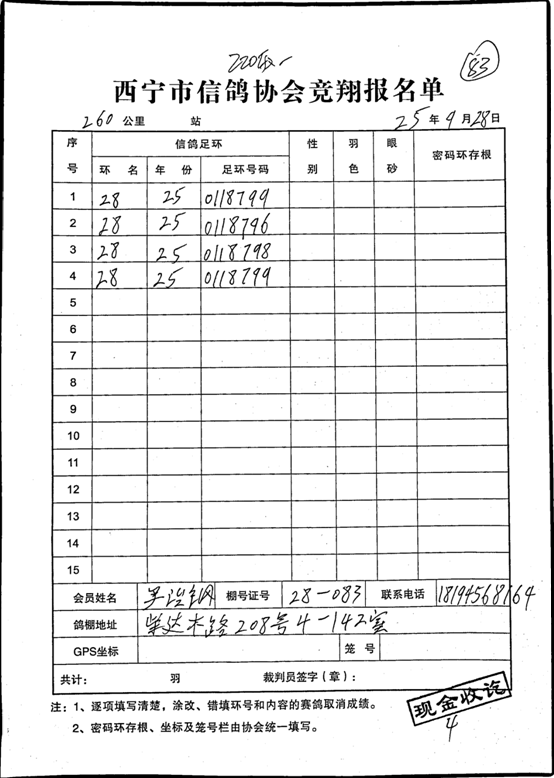 83
西宁市信鸽协会竞翔报名单
260 公里 站 25 年 4 月 28 日
序号 信鸽足环 性别 羽色 眼砂 密码环存根
环 名 年 份 足环号码
1 28 25 0118799
2 28 25 0118796
3 28 25 0118798
4 28 25 0118799
5
6
7
8
9
10
11
12
13
14
15
会员姓名 棚号证号 28-083 联系电话 18194568664
鸽棚地址 柴达木路208号4-142室
GPS坐标 笼 号
共计： 羽 裁判员签字（章）：
注：1、逐项填写清楚，涂改、错填环号和内容的赛鸽取消成绩。
2、密码环存根、坐标及笼号栏由协会统一填写。
现金收讫
4